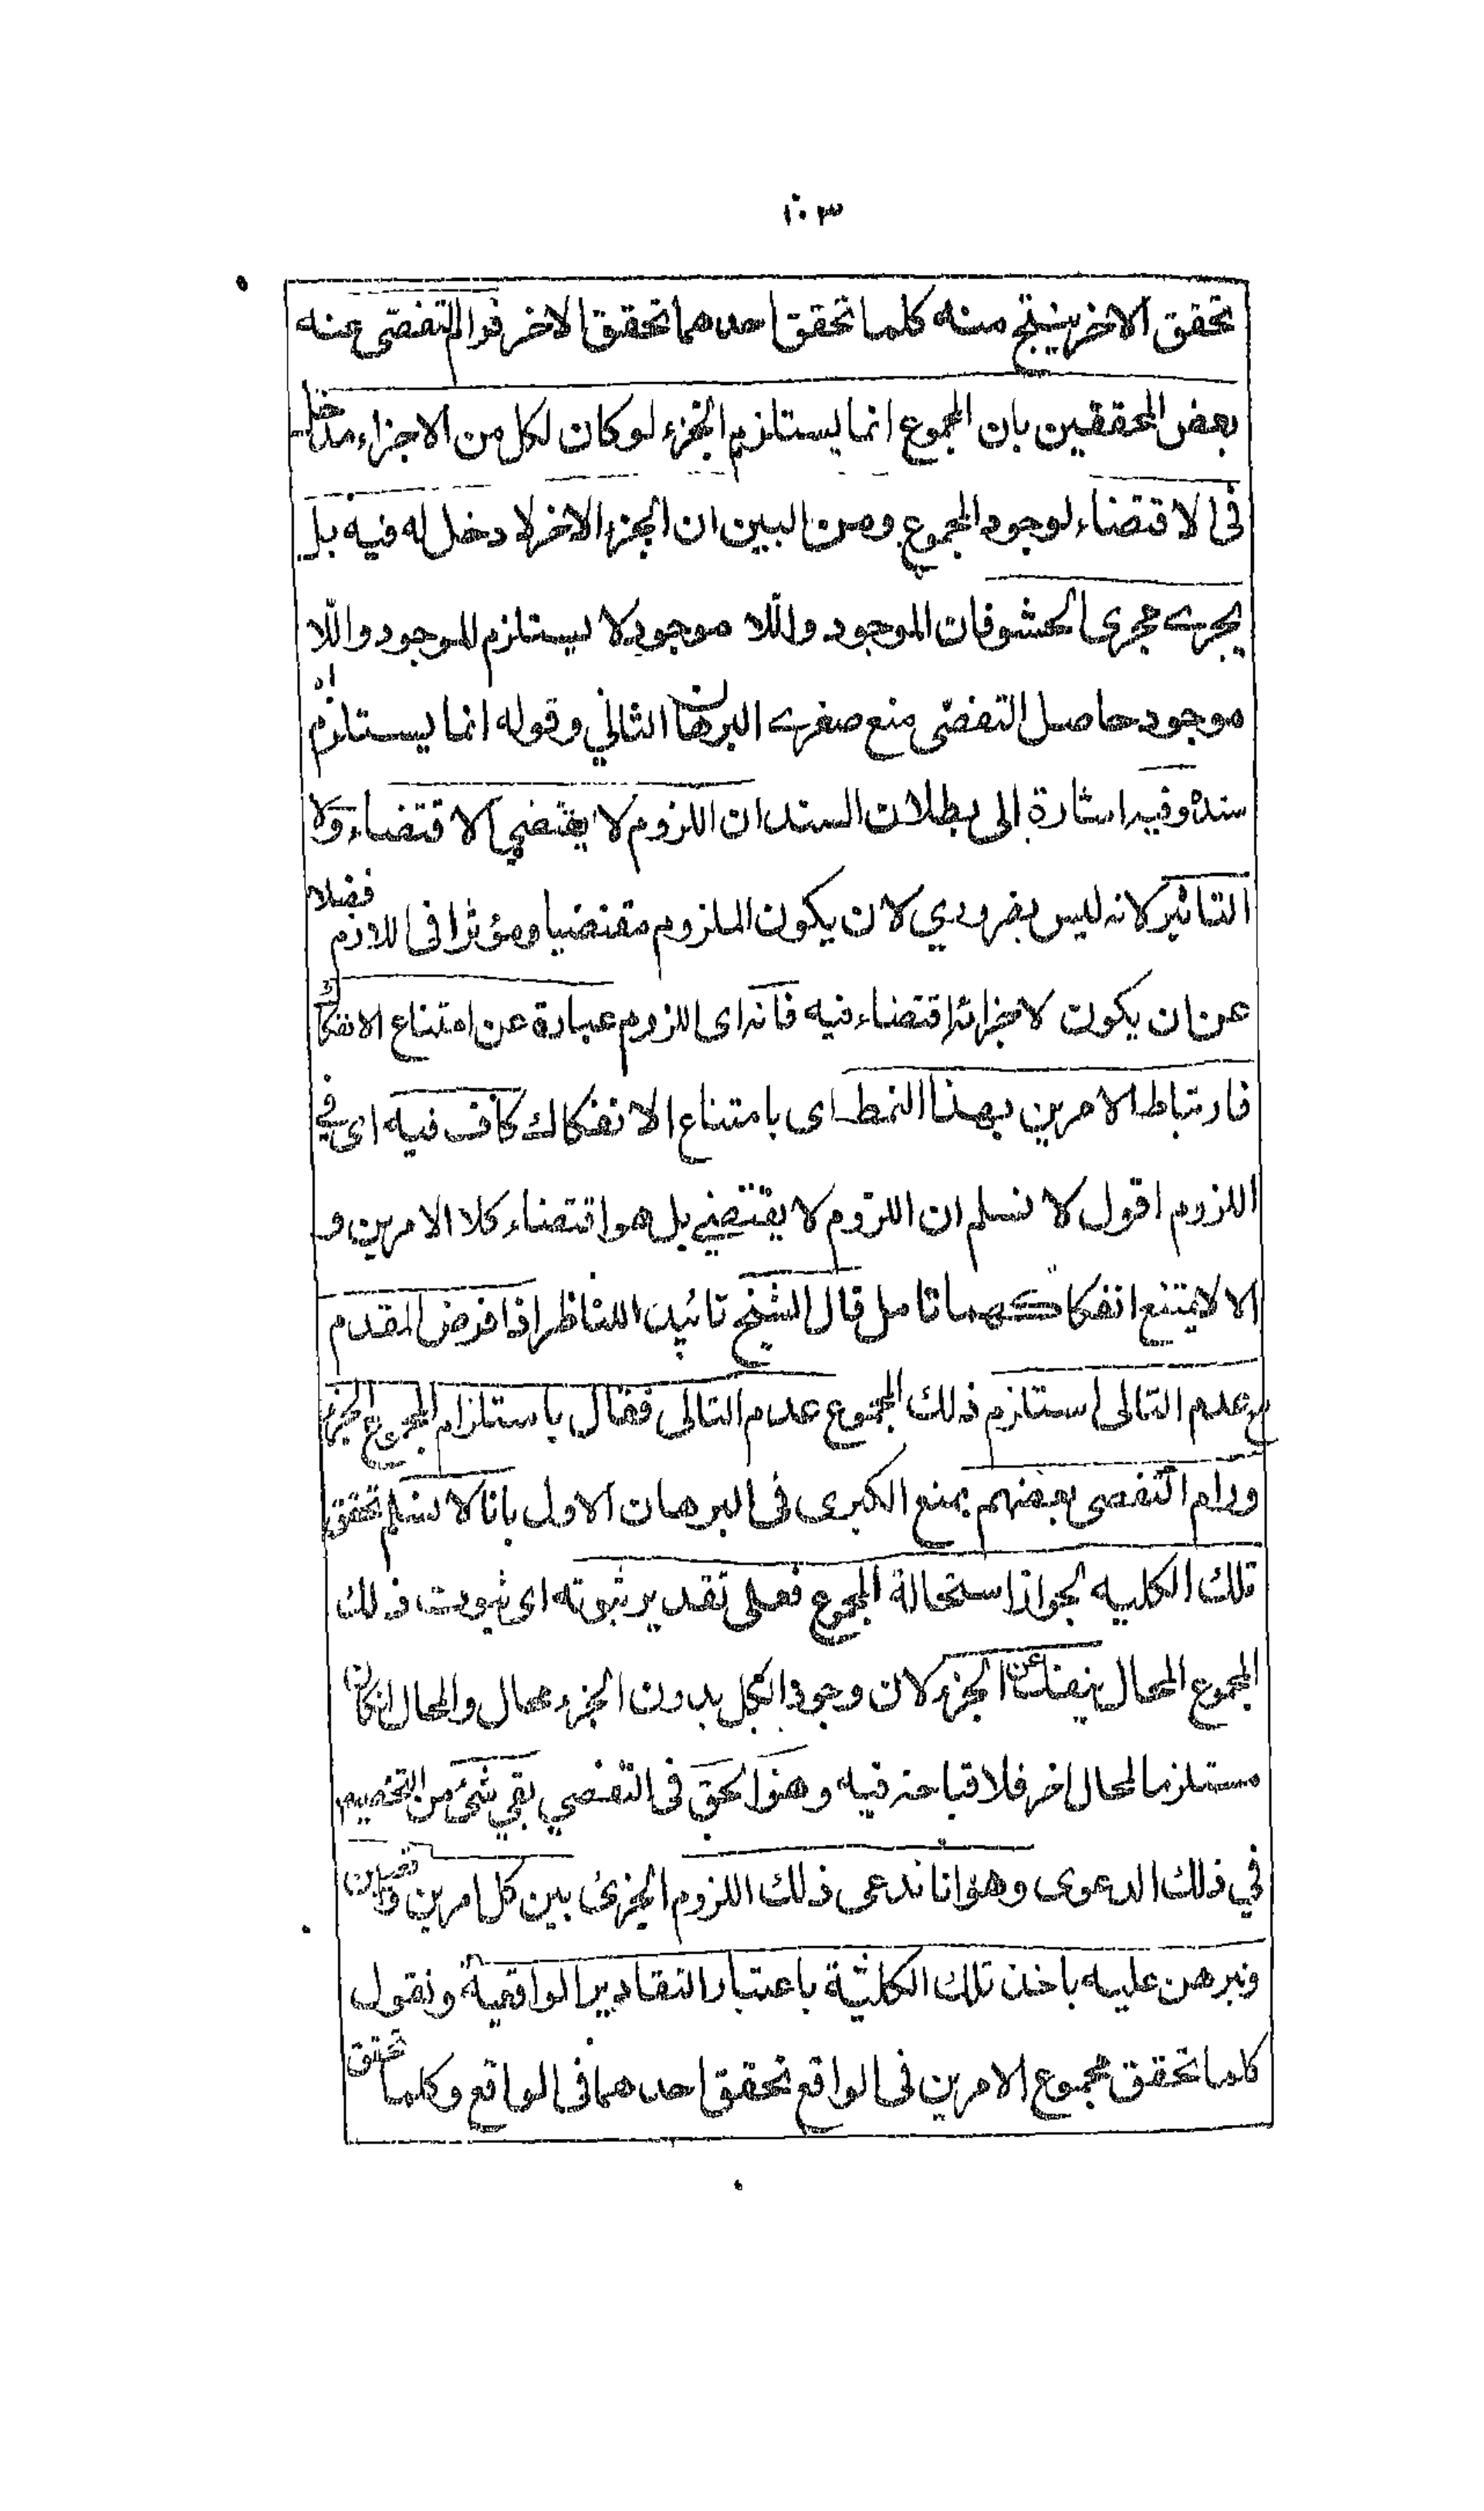 ١٠٣
تحقق الاخر ينتج منه كلما تحقق احدهما تحقق الاخر فرام التفصّى عنه
بعض المحققين بان المجموع انما يستلزم الجزء لو كان لكل من الاجزاء مدخل
فى الاقتضاء لوجود المجموع ومن البين ان الجزء الاخر لا دخل له فيه بل
يجرے مجرى الحشو فان الموجود واللا موجود لا يستلزم للموجود واللا
موجود حاصل التفصّى منع صغرے البرهان الثاني وقوله انما يستلزم اه
سنده وفيه اشارة الى بطلان السند ان اللزوم لا يقتضي الاقتضاء ولا
التاثير لانه ليس بضروري لان يكون الملزوم مقتضيا ومؤثرا فى اللازم فضلا
عن ان يكون لاجزائه اقتضاء فيه فانه اى اللزوم عبارة عن امتناع الانفكاك
فارتباط الامرين بهذا النمط اى بامتناع الانفكاك كاف فيه اى في
اللزوم اقول لا نسلم ان اللزوم لا يقتضي بل هو اقتضاء كلا الامرين و
الا لا يمتنع انفكاكهما تامل قال الشيخ تائيدا للناظر اذا فرض المقدم
مع عدم التالى استلزم ذلك المجموع عدم التالى فقال باستلزام المجموع الجزء
ورام التفصى بعضهم بمنع الكبرى فى البرهان الاول بانا لا نسلم تحقق
تلك الكليه لجواز استحالة المجموع فعلى تقدير ثبوته اى ثبوت ذلك
المجموع المحال ينفك عن الجزء لان وجود الكل بدون الجزء محال والمحال انكان
مستلزما لمحال اخر فلا قباحة فيه وهذا الحق فى التفصي بقي شئ من التخصيص
في ذلك الدعوى وهو انا ندعى ذلك اللزوم الجزئ بين كل امرين واقعيين
ونبرهن عليه باخذ تلك الكلية باعتبار التقادير الواقعية ونقول
كلما تحقق مجموع الامرين فى الواقع تحقق احدهما فى الواقع وكلما تحقق